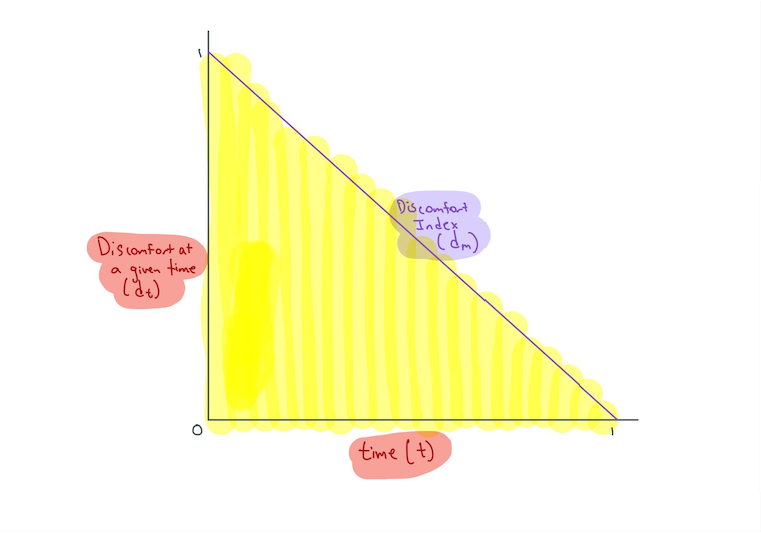 1
Discomfort
Index
(dm)
Discomfort at
a given time
(dt)
0
1
time (t)